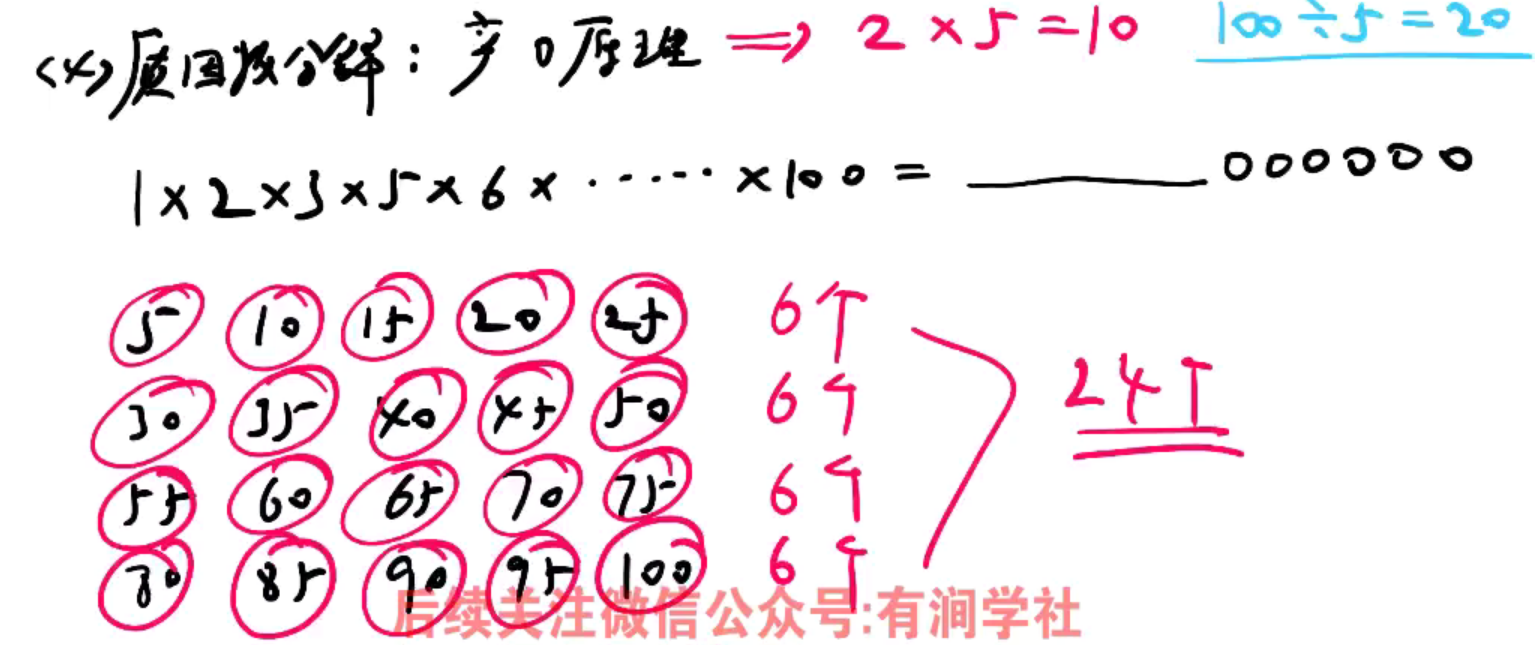 <4>质因数分解：产0原理 ⇒ 2×5=10 100÷5=20
1×2×3×5×6×······×100=______000000
5 10 15 20 25 6个
30 35 40 45 50 6个
55 60 65 70 75 6个
80 85 90 95 100 6个
24个
后续关注微信公众号:有涧学社